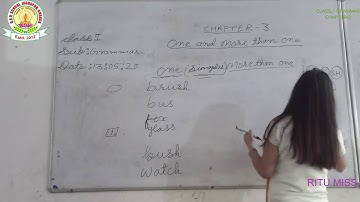 CHAPTER-3
Class I
One and more than one
Sub: Grammar
Date: 13:05:20
One (Singular) More than one
brush
bus
fox
glass
bush
watch
RITU MISS